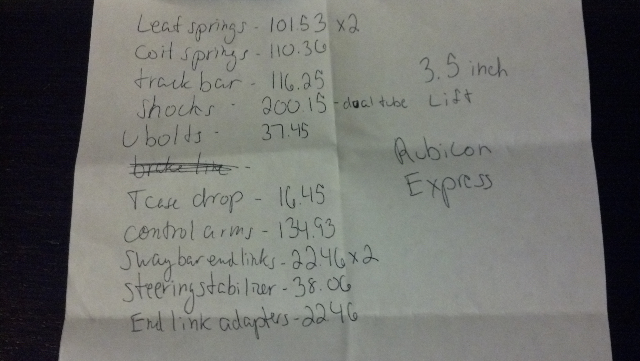 Leaf springs - 101.53 x2
Coil springs - 110.36
track bar - 116.25
shocks - 200.15 - dual tube
U bolts - 37.45
brake line -
Tcase drop - 16.45
control arms - 134.93
Swaybar endlinks - 2246 x 2
Steering stabilizer - 38.06
End link adapters - 2246
3.5 inch
Lift
Rubicon
Express